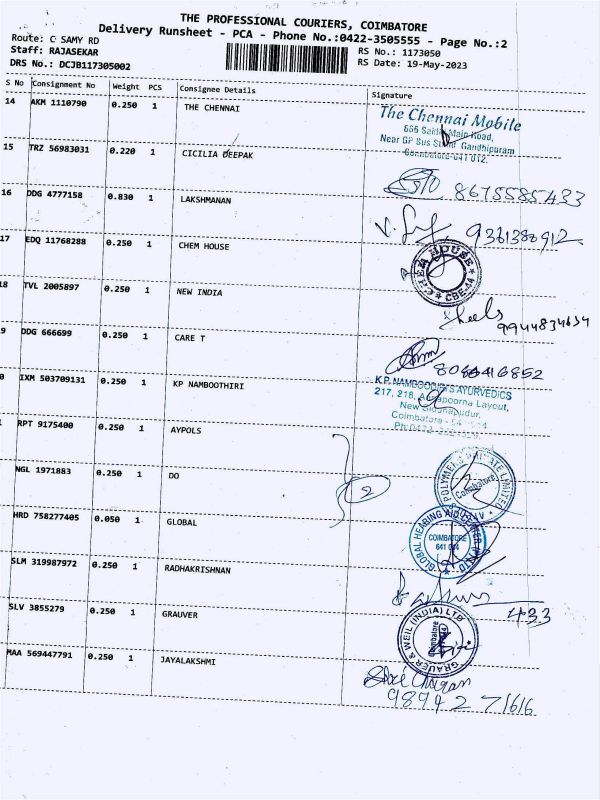 THE PROFESSIONAL COURIERS, COIMBATORE
Delivery Runsheet - PCA - Phone No.:0422-3505555 - Page No.:2
Route: C SAMY RD
Staff: RAJASEKAR
DRS No.: DCJB117305002
RS No.: 1173050
RS Date: 19-May-2023
S No Consignment No Weight PCS Consignee Details Signature
14 AKM 1110790 0.250 1 THE CHENNAI
The Chennai Mobile
Main Road,
Near GP Bus Stand Gandhipuram
Coimbatore-641 012.
15 TRZ 56983031 0.220 1 CICILIA DEEPAK
8675585433
16 DDG 4777158 0.830 1 LAKSHMANAN
9361388912
17 EDQ 11768288 0.250 1 CHEM HOUSE
CHEM HOUSE
CBE-44
18 TVL 2005897 0.250 1 NEW INDIA
9944834634
9 DDG 666699 0.250 1 CARE T
0 IXM 503709131 0.250 1 KP NAMBOOTHIRI
K.P. NAMBOODIRI'S AYURVEDICS
217, 218, Annapoorna Layout,
New Siddhapudur,
Coimbatore -
RPT 9175400 0.250 1 AYPOLS
POLYMERS PRIVATE LIMITED
Coimbatore
NGL 1971883 0.250 1 DO
2
HRD 758277405 0.050 1 GLOBAL
GLOBAL HEARING AID
COIMBATORE
641
SLM 319987972 0.250 1 RADHAKRISHNAN
433
SLV 3855279 0.250 1 GRAUVER
GRAUER & WEIL (INDIA) LTD
Coimbatore
MAA 569447791 0.250 1 JAYALAKSHMI
9894271616